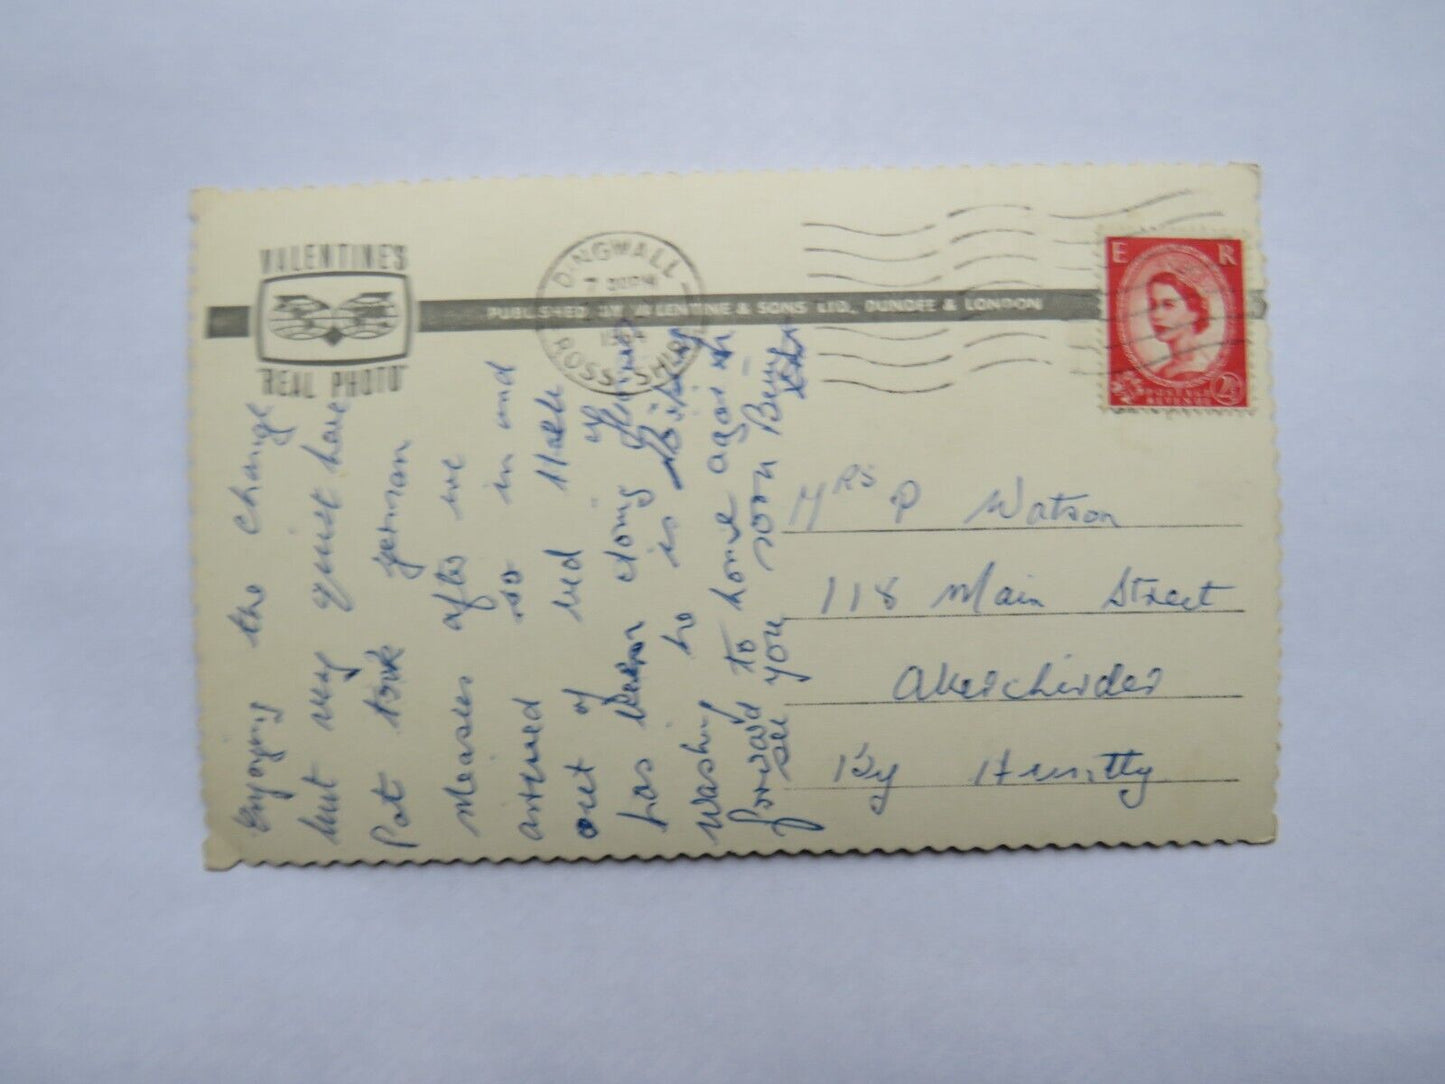 VALENTINE'S
"REAL PHOTO"
PUBLISHED BY VALENTINE & SONS LTD., DUNDEE & LONDON
DINGWALL
ROSS-SHIRE
E R
POSTAGE
REVENUE
2½
Enjoying the change
but very quiet have
Pat took german
measles after we
arrived so in and
out of bed
has been doing
washing he is
forward to home again
see you soon
Mrs P Watson
118 Main Street
Aberchirder
By Huntly